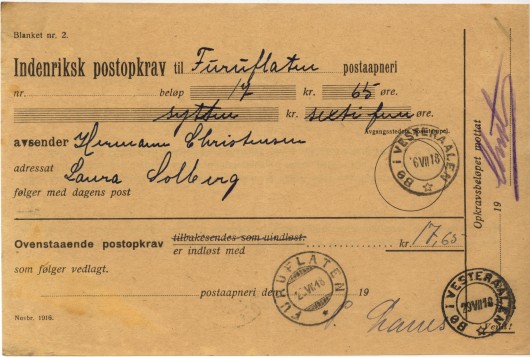 Blanket nr. 2.
Indenriksk postopkrav til Furuflaten postaapneri
nr. beløp 17 kr. 65 øre.
sytten kr. sexti fem øre.
Avgangsstedets
avsender Hermann Christensen
BØ I VESTERAALEN
16 VII 18
adressat Laura Solberg
følger med dagens post
Opkravsbeløpet mottat
19
Ovenstaaende postopkrav tilbakesendes som uindløst.
er indløst med kr. 17,65
som følger vedlagt.
FURUFLATEN
postaapneri den 19
BØ I VESTERAALEN
23 VII 18
Novbr. 1916.